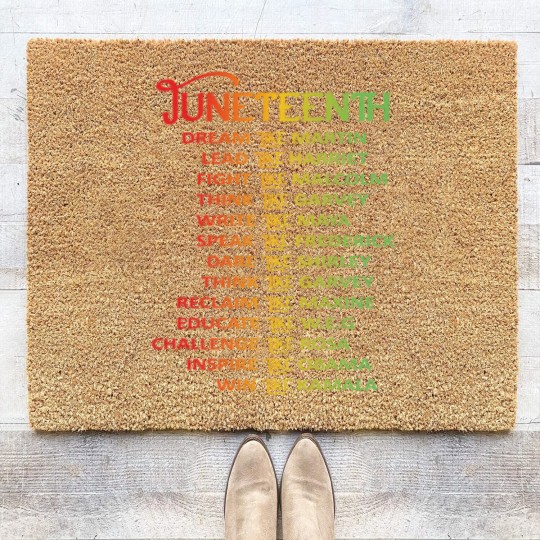 JUNETEENTH
DREAM LIKE MARTIN
LEAD LIKE HARRIET
FIGHT LIKE MALCOLM
THINK LIKE GARVEY
WRITE LIKE MAYA
SPEAK LIKE FREDERICK
DARE LIKE
THINK LIKE GARVEY
RECLAIM LIKE MAXINE
EDUCATE LIKE W.E.B
CHALLENGE LIKE ROSA
INSPIRE LIKE OBAMA
WIN LIKE KAMALA